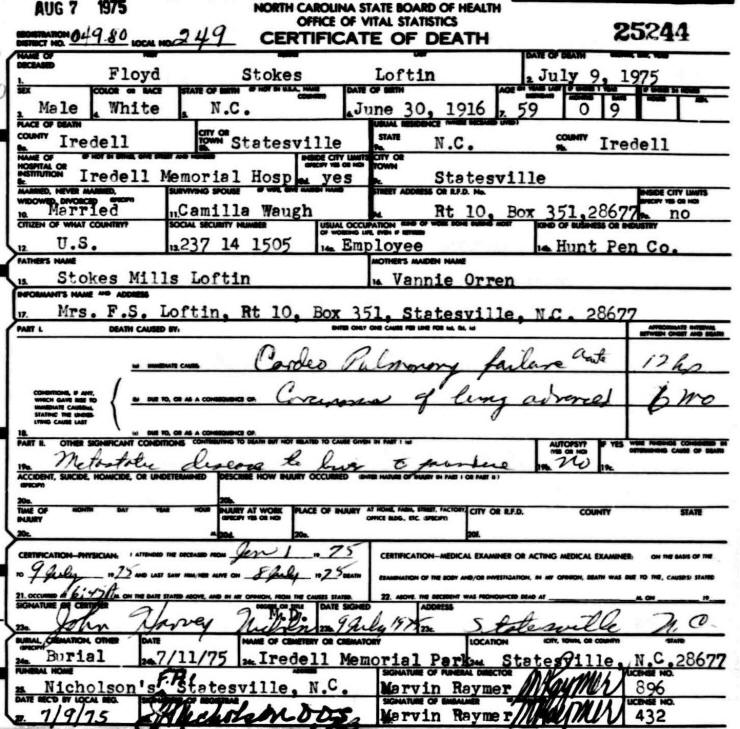 AUG 7 1975
NORTH CAROLINA STATE BOARD OF HEALTH
OFFICE OF VITAL STATISTICS
CERTIFICATE OF DEATH
25244
REGISTRATION DISTRICT NO. 049.80 LOCAL NO. 249
NAME OF DECEASED FIRST LAST DATE OF DEATH
1. Floyd Stokes Loftin 2. July 9, 1975
SEX COLOR OR RACE STATE OF BIRTH (IF NOT IN U.S.A., NAME COUNTRY) DATE OF BIRTH AGE
3. Male 4. White 5. N.C. 6. June 30, 1916 7. 59 0 9
PLACE OF DEATH USUAL RESIDENCE
COUNTY Iredell CITY OR TOWN Statesville STATE N.C. COUNTY Iredell
NAME OF HOSPITAL OR INSTITUTION (IF NOT IN EITHER, GIVE STREET AND NUMBER) INSIDE CITY LIMITS (SPECIFY YES OR NO) CITY OR TOWN
Iredell Memorial Hosp yes Statesville
MARRIED, NEVER MARRIED, WIDOWED, DIVORCED (SPECIFY) SURVIVING SPOUSE (IF WIFE, GIVE MAIDEN NAME) STREET ADDRESS OR R.F.D. No. INSIDE CITY LIMITS (SPECIFY YES OR NO)
10. Married 11. Camilla Waugh Rt 10, Box 351, 28677 no
CITIZEN OF WHAT COUNTRY? SOCIAL SECURITY NUMBER USUAL OCCUPATION (KIND OF WORK DONE DURING MOST OF WORKING LIFE, EVEN IF RETIRED) KIND OF BUSINESS OR INDUSTRY
12. U.S. 13. 237 14 1505 14a. Employee 14b. Hunt Pen Co.
FATHER'S NAME MOTHER'S MAIDEN NAME
15. Stokes Mills Loftin 16. Vannie Orren
INFORMANT'S NAME AND ADDRESS
17. Mrs. F.S. Loftin, Rt 10, Box 351, Statesville, N.C. 28677
PART I. DEATH CAUSED BY: ENTER ONLY ONE CAUSE PER LINE FOR (a), (b), (c) APPROXIMATE INTERVAL BETWEEN ONSET AND DEATH
(a) IMMEDIATE CAUSE: Cardeo Pulmonary failure acute 12 hrs
CONDITIONS, IF ANY, WHICH GAVE RISE TO IMMEDIATE CAUSE(a), STATING THE UNDERLYING CAUSE LAST
(b) DUE TO, OR AS A CONSEQUENCE OF: Carcinoma of lung advanced 6 mo
18. (c) DUE TO, OR AS A CONSEQUENCE OF:
PART II. OTHER SIGNIFICANT CONDITIONS CONTRIBUTING TO DEATH BUT NOT RELATED TO CAUSE GIVEN IN PART I (a) AUTOPSY? (YES OR NO) IF YES WERE FINDINGS CONSIDERED IN DETERMINING CAUSE OF DEATH
19a. Metastatic disease to liver 19b. no 19c.
ACCIDENT, SUICIDE, HOMICIDE, OR UNDETERMINED (SPECIFY) DESCRIBE HOW INJURY OCCURRED (ENTER NATURE OF INJURY IN PART I OR PART II)
20a. 20b.
TIME OF INJURY MONTH DAY YEAR HOUR INJURY AT WORK (SPECIFY YES OR NO) PLACE OF INJURY AT HOME, FARM, STREET, FACTORY, OFFICE BLDG., ETC. (SPECIFY) CITY OR R.F.D. COUNTY STATE
20c. M. 20d. 20e. 20f.
CERTIFICATION—PHYSICIAN: I ATTENDED THE DECEASED FROM Jan 1 19 75
TO 9 July 1975 AND LAST SAW HIM/HER ALIVE ON 8 July 1975 DEATH
21. OCCURRED AT 6:47 A ON THE DATE STATED ABOVE, AND IN MY OPINION, FROM THE CAUSES STATED.
CERTIFICATION—MEDICAL EXAMINER OR ACTING MEDICAL EXAMINER: ON THE BASIS OF THE
EXAMINATION OF THE BODY AND/OR INVESTIGATION, IN MY OPINION, DEATH WAS DUE TO THE, CAUSE(S) STATED
22. ABOVE. THE DECEDENT WAS PRONOUNCED DEAD AT M. ON 19
SIGNATURE OF CERTIFIER DEGREE OR TITLE DATE SIGNED ADDRESS
23a. John Harvey M.D. 23b. 9 July 1975 23c. Statesville N.C.
BURIAL, CREMATION, OTHER (SPECIFY) DATE NAME OF CEMETERY OR CREMATORY LOCATION (CITY, TOWN, OR COUNTY) (STATE)
24a. Burial 24b. 7/11/75 24c. Iredell Memorial Park 24d. Statesville, N.C. 28677
FUNERAL HOME ADDRESS SIGNATURE OF FUNERAL DIRECTOR LICENSE NO.
25. Nicholson's F.H. Statesville, N.C. Marvin Raymer M Raymer 896
DATE REC'D BY LOCAL REG. SIGNATURE OF REGISTRAR SIGNATURE OF EMBALMER LICENSE NO.
27. 7/9/75 Nicholson DDS Marvin Raymer M Raymer 432